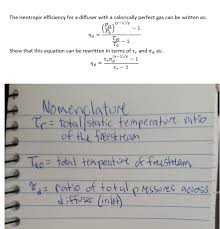 The isentropic efficiency for a diffuser with a calorically perfect gas can be written as:
η_d = ((P_t2/P_0)^((γ-1)/γ) − 1) / (T_t0/T_0 − 1)
Show that this equation can be rewritten in terms of τ_r and π_d as:
η_d = (τ_r π_d^((γ-1)/γ) − 1) / (τ_r − 1)
Nomenclature
τr = total/static temperature ratio
of the freestream
Tt0 = total temperature of freestream
πd = ratio of total pressures across
diffuser (inlet)